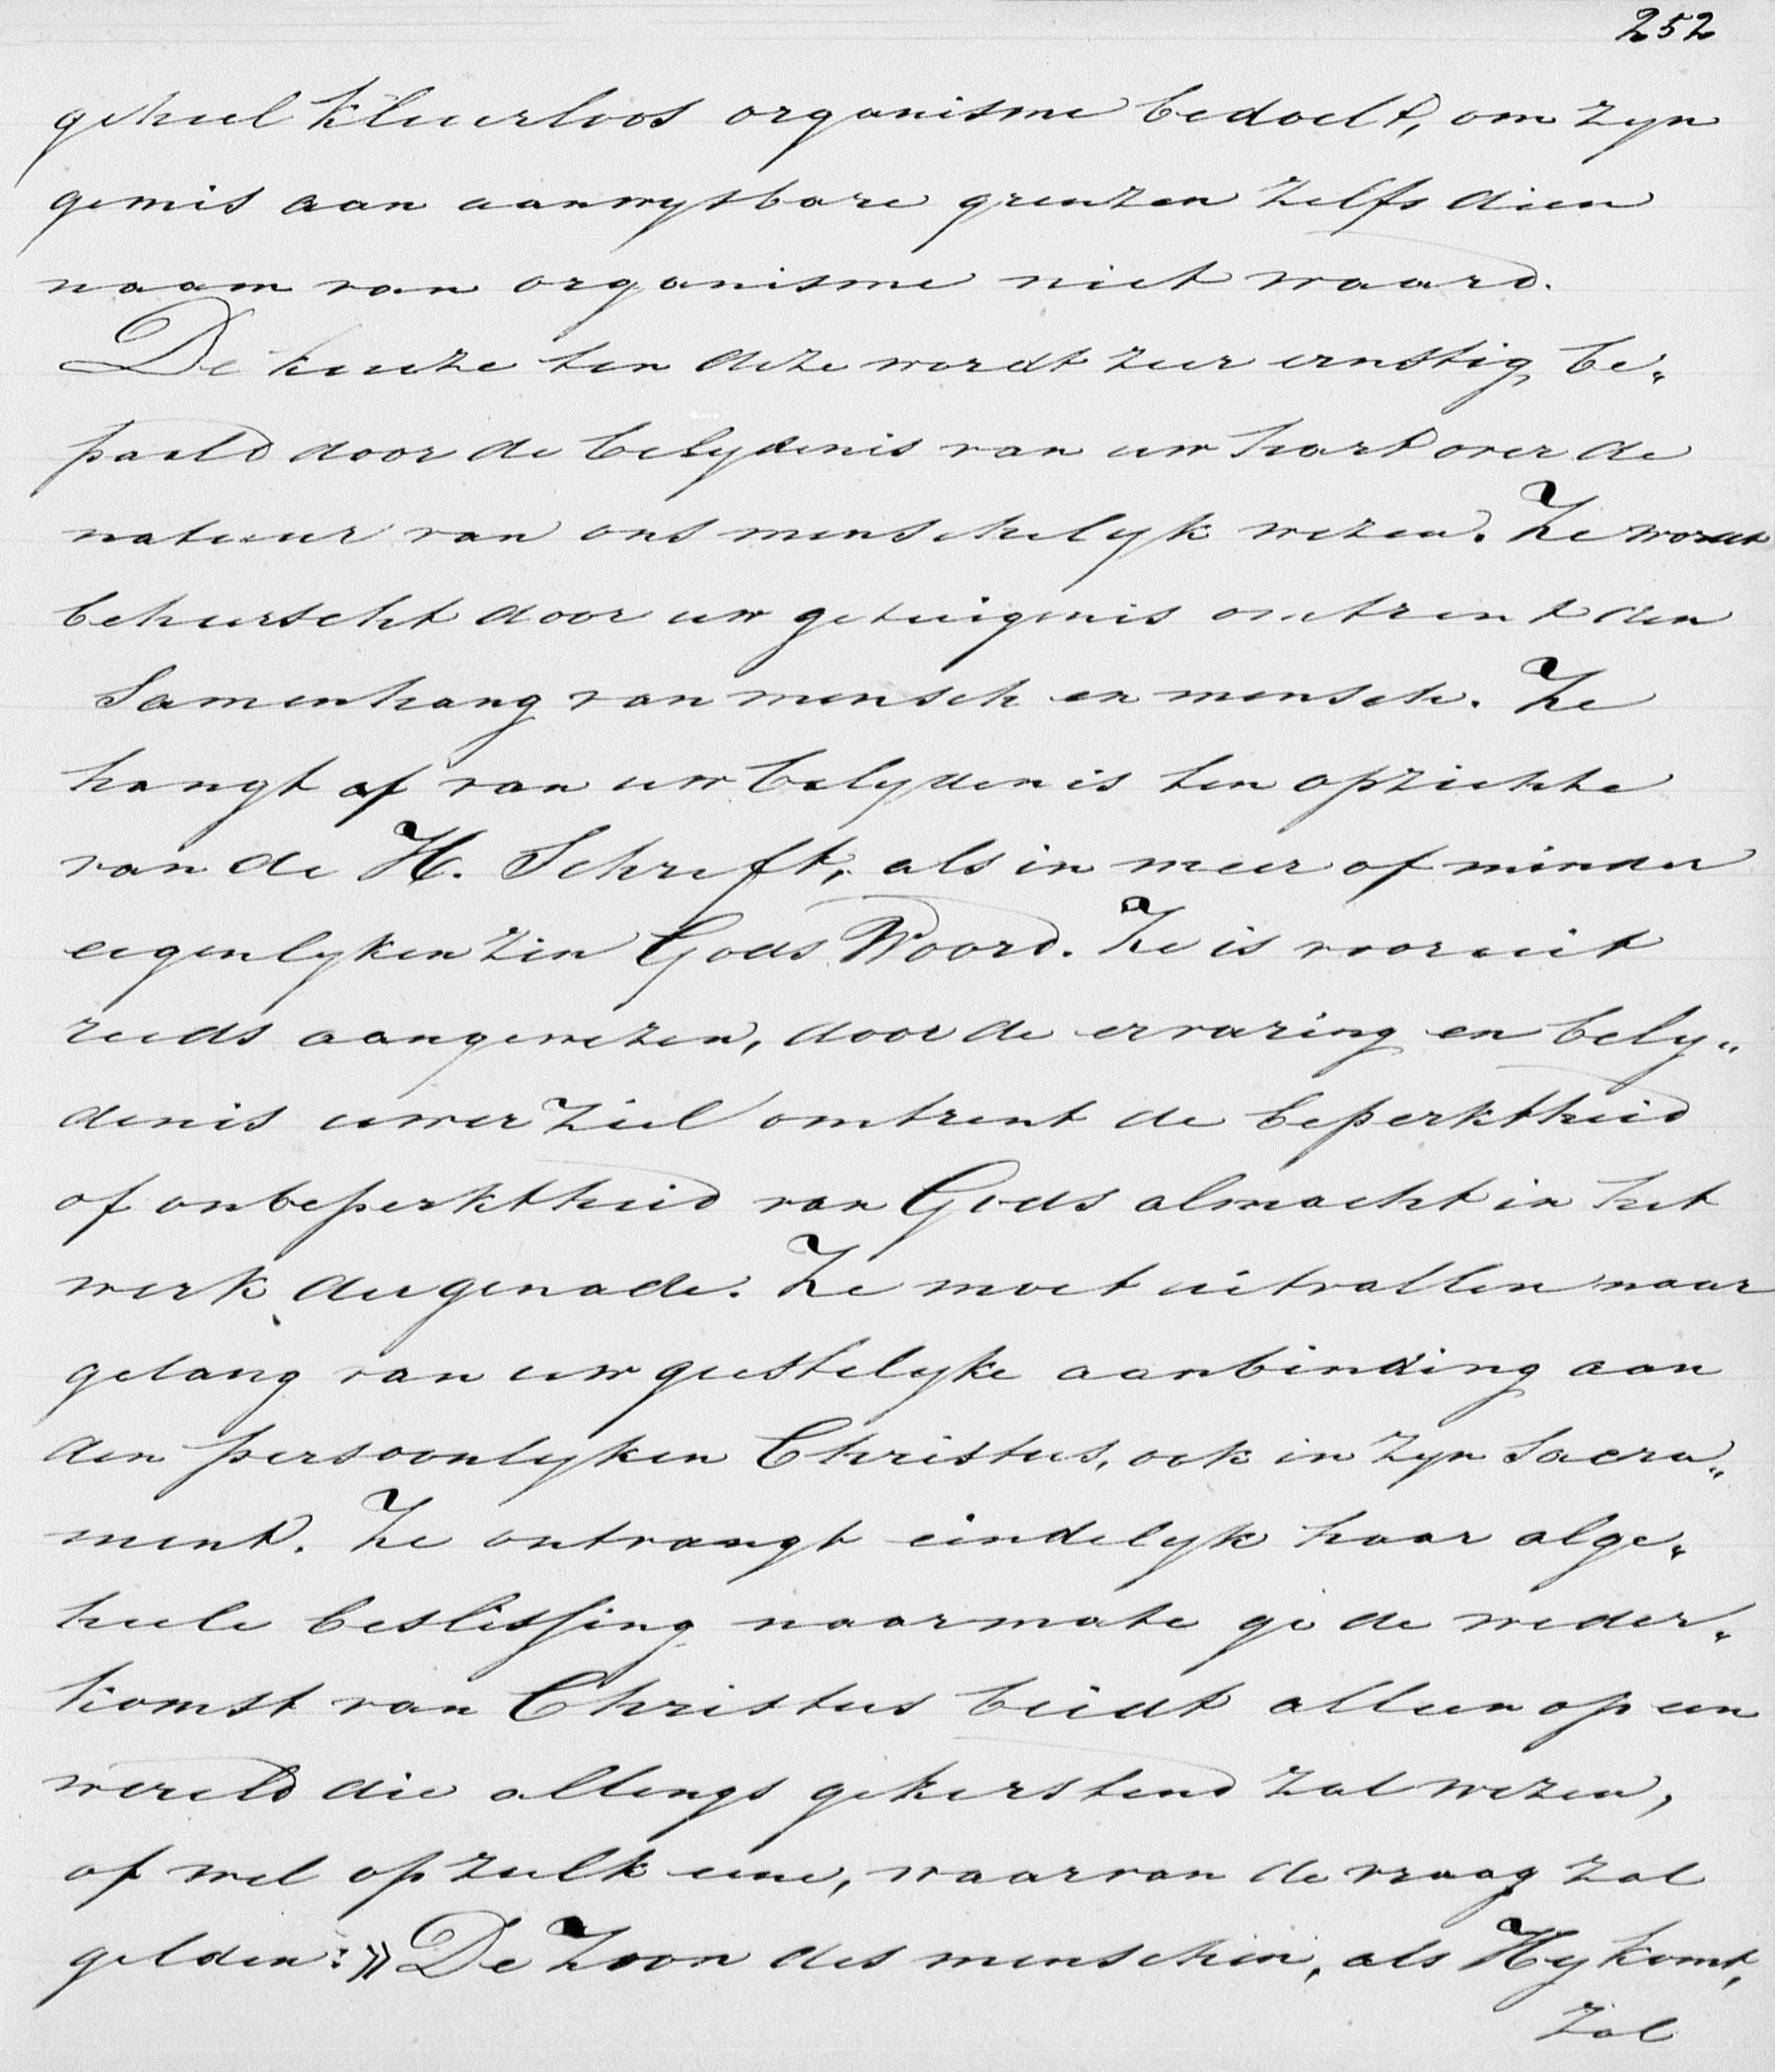 252
geheel kleurloos organisme bedoelt, om zyn
gemis aan aanwysbare grenzen zelfs dien
naam van organisme niet waard.
De keuze ten deze wordt zeer ernstig be„
paald door de belydenis van uw hart over de
natuur van ons menschelyk wezen. Ze wordt
beheerscht door uw getuigenis omtrent den
Samenhang van mensch en mensch. Ze
hangt af van uw belydenis ten opzichte
van de H. Schrift, als in meer of minder
eigenlyken zin Gods Woord. Ze is vooruit
reeds aangewezen, door de ervaring en bely„
denis uwer ziel omtrent de beperktheid
of onbeperktheid van Gods almacht in het
werk der genade. Ze moet uitvallen naar
gelang van uw geestelyke aanbinding aan
den persoonlyken Christus, ook in zyn Sacra„
ment. Ze ontvangt eindelyk haar alge„
heele beslissing naarmate ge de weder„
komst van Christus beidt alleen op een
wereld die allengs gekerstend zal wezen,
of wel op zulk eene, waarvan de vraag zal
gelden: » De Zoon des menschen, als Hy komt,
zal